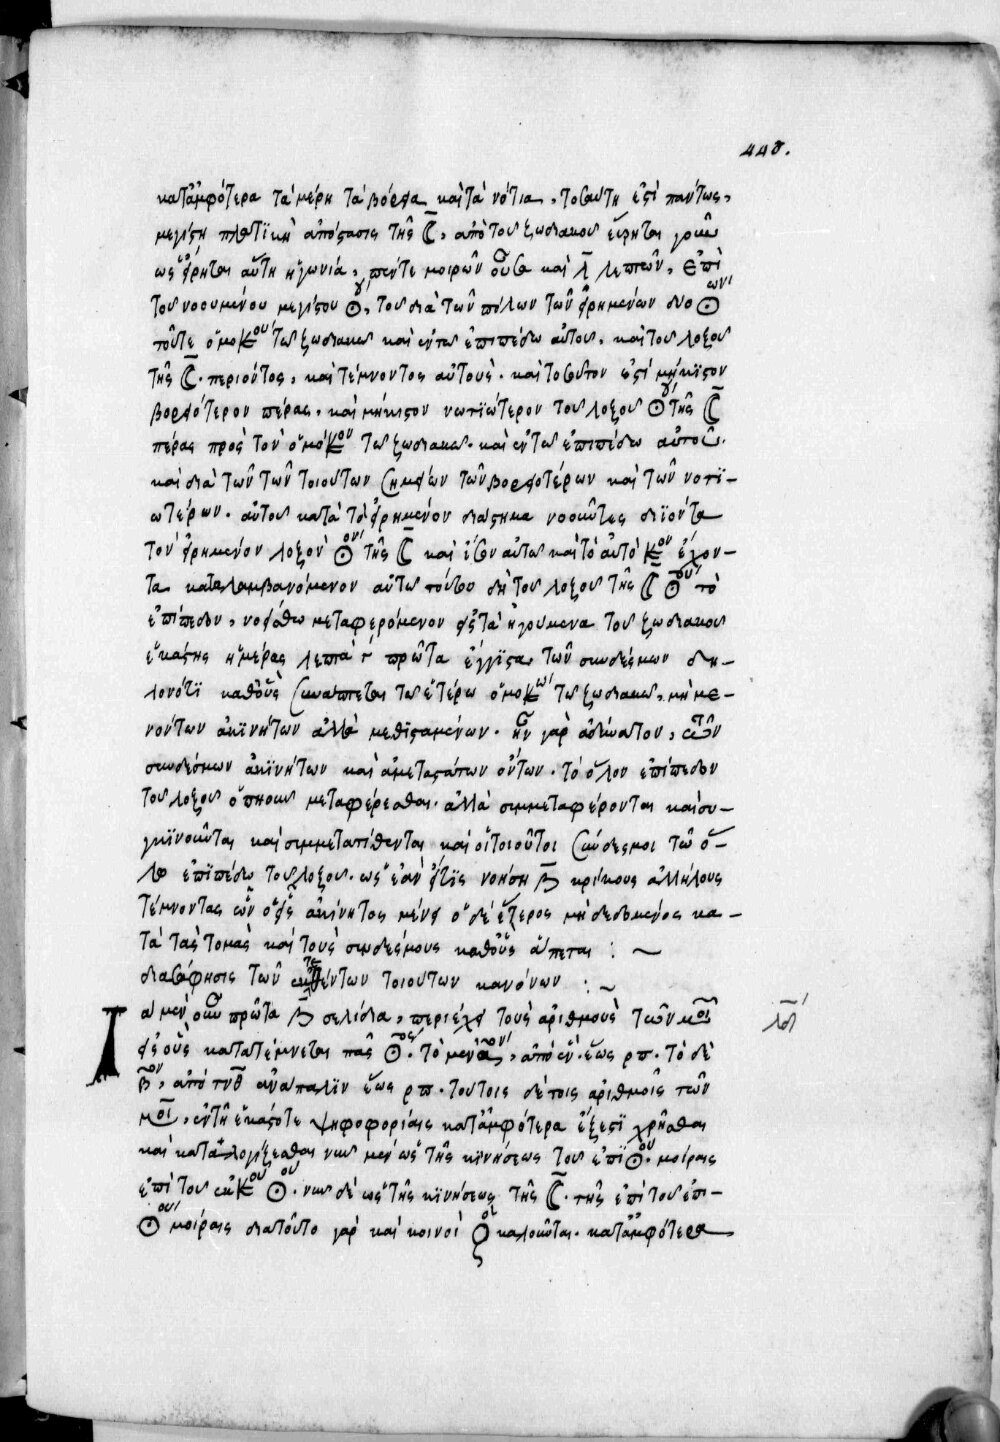 448.
κατ' ἀμφότερα τὰ μέρη τὰ βόρεια καὶ τὰ νότια, τοσαύτη ἐστὶ πάντως,
μεγίστη πλατικὴ ἀπόστασις τῆς ☾, ἀπὸ τοῦ ζωδιακοῦ εὕρηται
ὡς εἴρηται αὕτη ἡ γωνία, πέντε μοιρῶν οὖσα καὶ λ λεπτῶν, ἐπὶ
τοῦ νοουμένου μεγίστου ☉, τοῦ διὰ τῶν πόλων τῶν εἰρημένων δύο ☉
τοῦτε ὁμο τῶ ζωδιακῶ καὶ ἐν τῶ ἐπιπέδω αὐτοῦ, καὶ τοῦ λοξοῦ
τῆς ☾ περιόντος, καὶ τέμνοντος αὐτοὺς. καὶ τοῦτον ἐστί μήκιστον
βορειότερον πέρας, καὶ μήκιστον νωτιώτερον τοῦ λοξοῦ ☉ τῆς ☾
πέρας πρὸς τὸν ὁμόκ τῶ ζωδιακῶ. καὶ ἐν τῶ ἐπιπέδω αὐτοῦ.
καὶ διὰ τῶν τῶν τοιούτων σημείων τῶν βορειοτέρων καὶ τῶν νοτι-
ωτέρων. αὐτοῦ κατὰ τὸ εἰρημένον διάστημα νοοῦντες διϊόντα
τὸν εἰρημένον λοξὸν ☉ τῆς ☾ καὶ ἴσον αὐτῶ καὶ τὸ αὐτὸ κ ἔχον-
τα καταλαμβανόμενον αὐτῶ τούτου δὴ τοῦ λοξοῦ τῆς ☾ ☉ τὸ
ἐπίπεδον, νοείσθω μεταφερόμενον εἰς τὰ ἡγούμενα τοῦ ζωδιακοῦ
ἑκάστης ἡμέρας λεπτὰ γ πρῶτα ἔγγιστα τῶν συνδέσμων δη-
λονότι καθ' οὓς συνάπτεται τῶ ἑτέρω ὁμοκ τῶ ζωδιακῶ, μὴ με-
νόντων ἀκινήτων ἀλλὰ μεθισταμένων. ἦν γὰρ ἀδύνατον, τῶν
συνδέσμων ἀκινήτων καὶ ἀμεταστάτων ὄντων. τὸ ὅλον ἐπίπεδον
τοῦ λοξοῦ μεταφέρεσθαι. ἀλλὰ συμμεταφέρονται καὶ συ-
γκινοῦνται καὶ συμμετατίθενται καὶ οἱ τοιοῦτοι σύνδεσμοι τῶ ὅ-
λω ἐπιπέδω τοῦ λοξοῦ. ὡς ἐὰν εἴ τις νοήση β κρίκους ἀλλήλους
τέμνοντας ὧν ὁ εἷς ἀκίνητος μένει ὁ δὲ ἕτερος μὴ δεδεμένος κα-
τὰ τὰς τομὰς καὶ τοὺς συνδέσμους καθ' οὓς ἅπτεται : ~
διασάφησις τῶν ἐκτεθέντων τοιούτων κανόνων : ~
Τὰ μὲν οὖν πρῶτα β σελίδια, περιέχει τοὺς ἀριθμοὺς τῶν μοι
εἰς οὓς κατατέμνεται πᾶς ☉. τὸ μὲν αον, ἀπὸ ἑν. ἕως ρπ. τὸ δὲ
βον, ἀπὸ τνθ ἀνάπαλιν ἕως ρπ. τούτοις δὲ τοῖς ἀριθμοῖς τῶν
μοι, ἐν τῆ ἑκάστοτε ψηφοφορίαις κατ' ἀμφότερα ἔξεστι χρῆσθαι
καὶ καταλογίζεσθαι νῦν μὲν ὡς τῆς κινήσεως τοῦ ἐπι☉ου μοίραις
ἐπὶ τοῦ ἐκκου ☉ου. νῦν δὲ ὡς τῆς κινήσεως τῆς ☾. τῆς ἐπὶ τοῦ ἐπι-
☉ου μοίραις διὰ τοῦτο γὰρ καὶ κοινοὶ καλοῦνται. κατ' ἀμφότερα